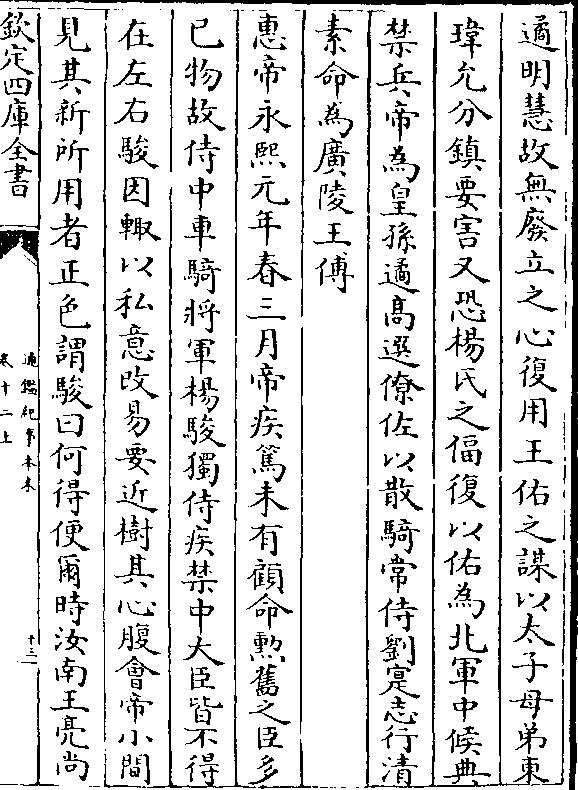 遹明慧故無廢立之心復用王佑之謀以太子母弟東
瑋允分鎮要害又恐楊氏之偪復以佑為北軍中候典
禁兵帝為皇孫遹高選僚佐以散騎常侍劉寔志行清
素命為廣陵王傅
惠帝永熙元年春三月帝疾篤未有顧命勲舊之臣多
已物故侍中車騎將軍楊駿獨侍疾禁中大臣皆不得
在左右駿因輒以私意改易要近樹其心腹會帝小間
見其新所用者正色謂駿曰何得便爾時汝南王亮尚
欽定四庫全書
通鑑紀事本末
卷十二上
十三